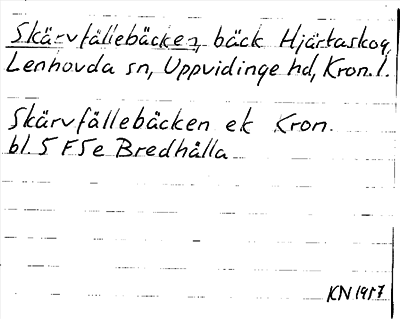 Skärvfällebäcken, bäck Hjärtaskog,
Lenhovda sn, Uppvidinge hd, Kron. l.
Skärvfällebäcken ek Kron.
bl. 5 F 5e Bredhälla
KN 1957